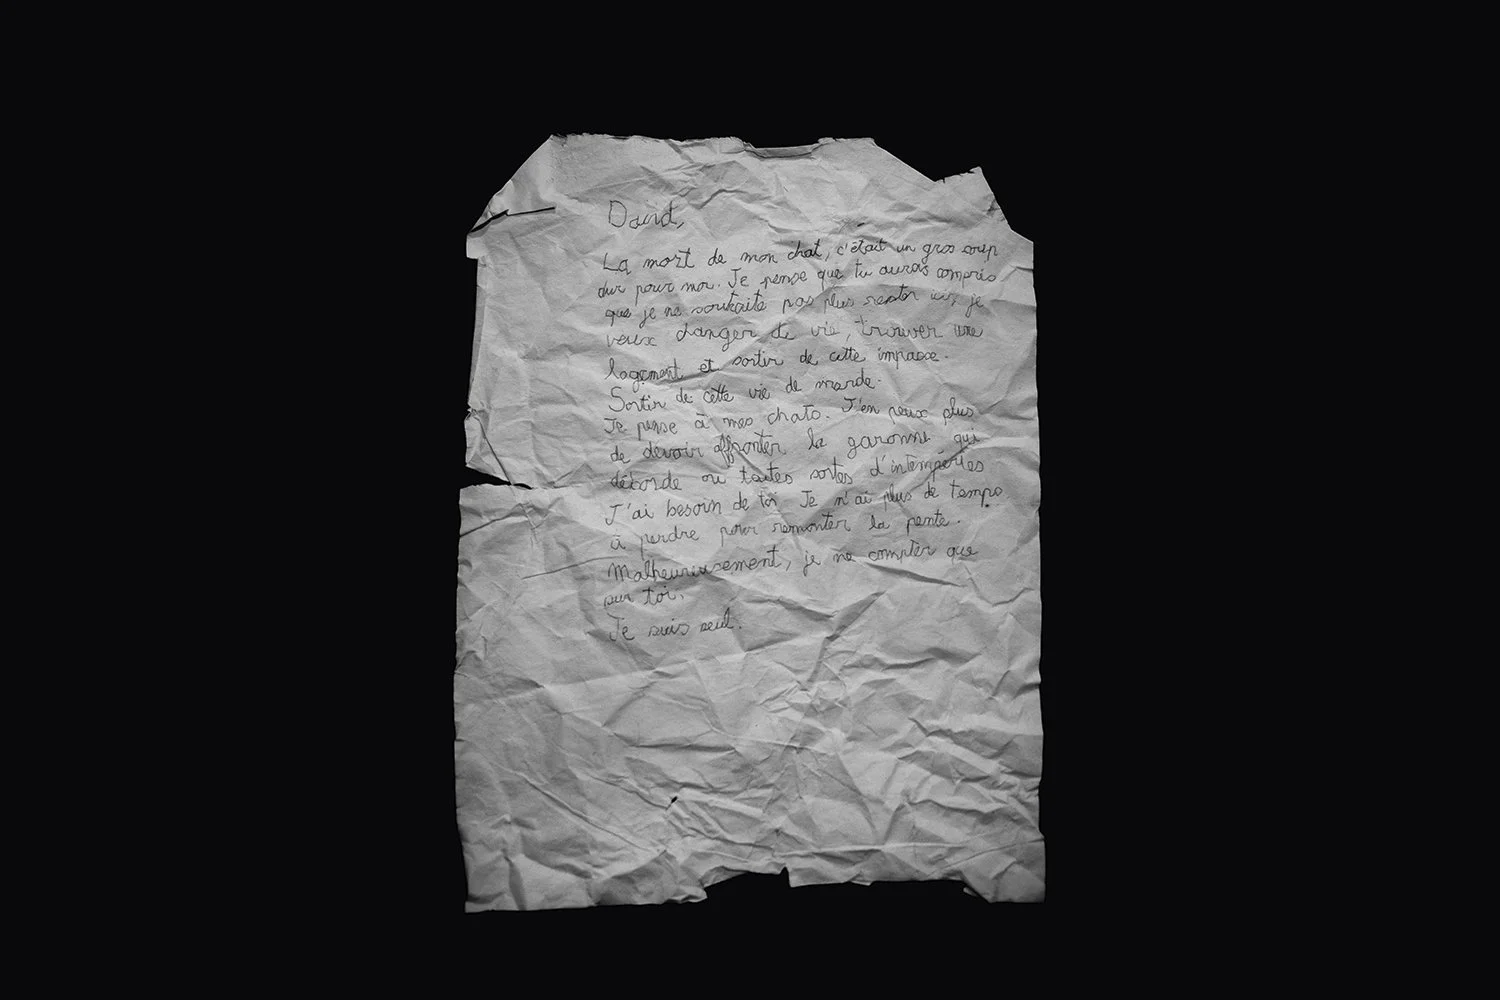 David,
La mort de mon chat, c'était un gros coup
dur pour moi. Je pense que tu auras compris
que je ne souhaite pas plus rester ici, je
veux changer de vie, trouver une
logement et sortir de cette impasse.
Sortir de cette vie de marde.
Je pense à mes chats. J'en peux plus
de devoir affronter la garonne qui
déborde ou toutes sortes d'intempéries
J'ai besoin de toi. Je n'ai plus de temps
à perdre pour remonter la pente.
Malheureusement, je ne compter que
sur toi.
Je suis seul.